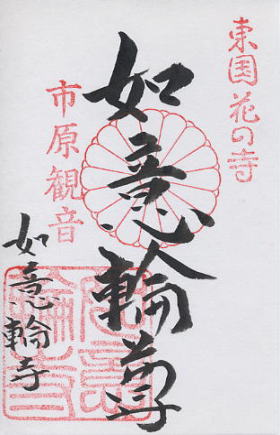 東国花の寺
如意輪尊
市原観音
如意輪寺